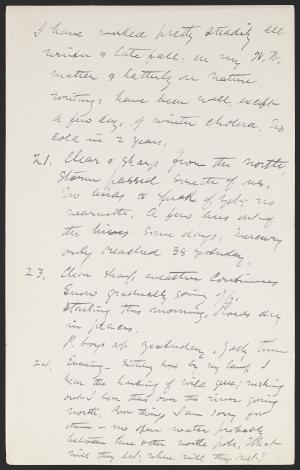 I have worked pretty steadily all
winter & late fall; on my W. W.
matter & latterly on nature
writing; have been well, except
a few days, of winter cholera. No
cold in 2 years.
21. Clear & sharp from the north,
Storm passed south of us.
No birds to speak of yet; no
nearmth. A few bees out of
the hives some days, mercury
only reached 38 yesterday.
23. Clear sharp, weather continues
Snow gradually going off.
Starling this morning. Roads dry
in places.
P. boys up yesterday, jolly time.
24. Evening – Sitting here by my lamp I
hear the honking of wild geese; rushing
out I hear them over the river going
north, Poor things I am sorry for
them – no open water probably
between here & the north pole, What
will they eat; where will they rest?